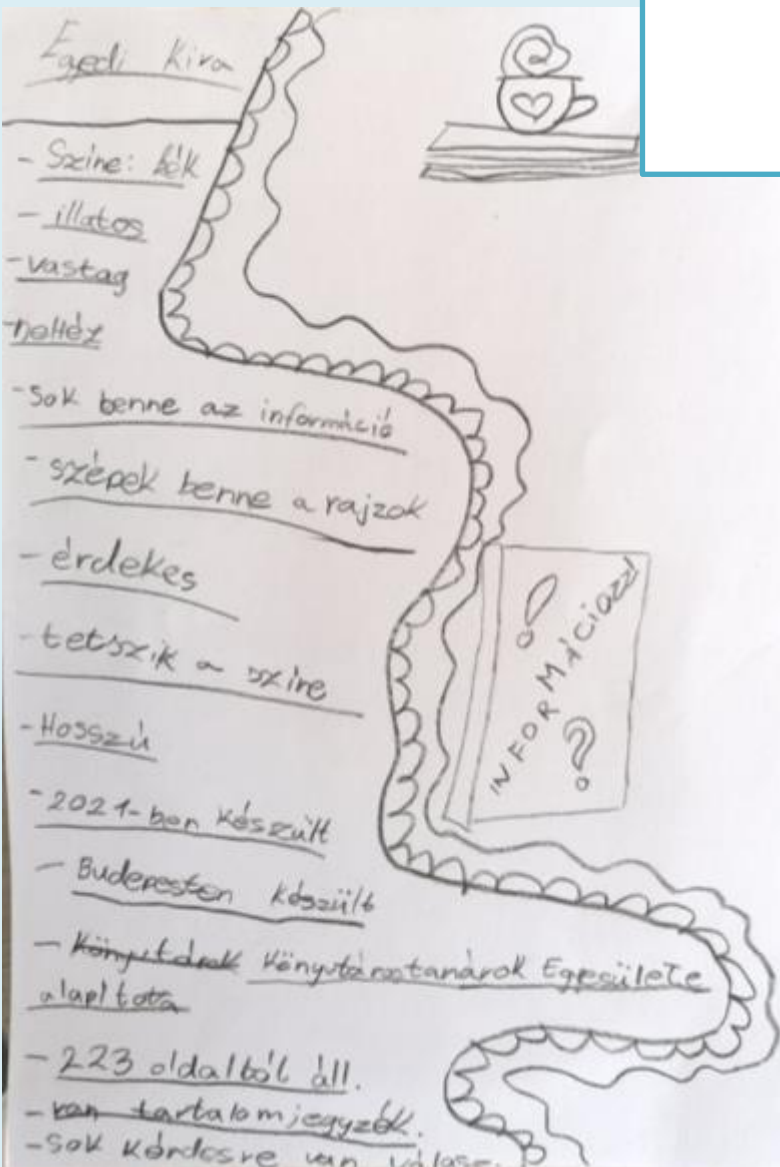 Egedi Kira
- Színe: kék
- illatos
- vastag
- nehéz
- sok benne az információ
- szépek benne a rajzok
- érdekes
- tetszik a színe
- Hosszú
- 2021-ben készült
- Budapesten készült
- Könyvtárostanárok Egyesülete
alapította
- 223 oldalból áll.
- van tartalomjegyzék.
- sok kérdésre van válasz.
INFORMÁCIÓZZ!
! ?